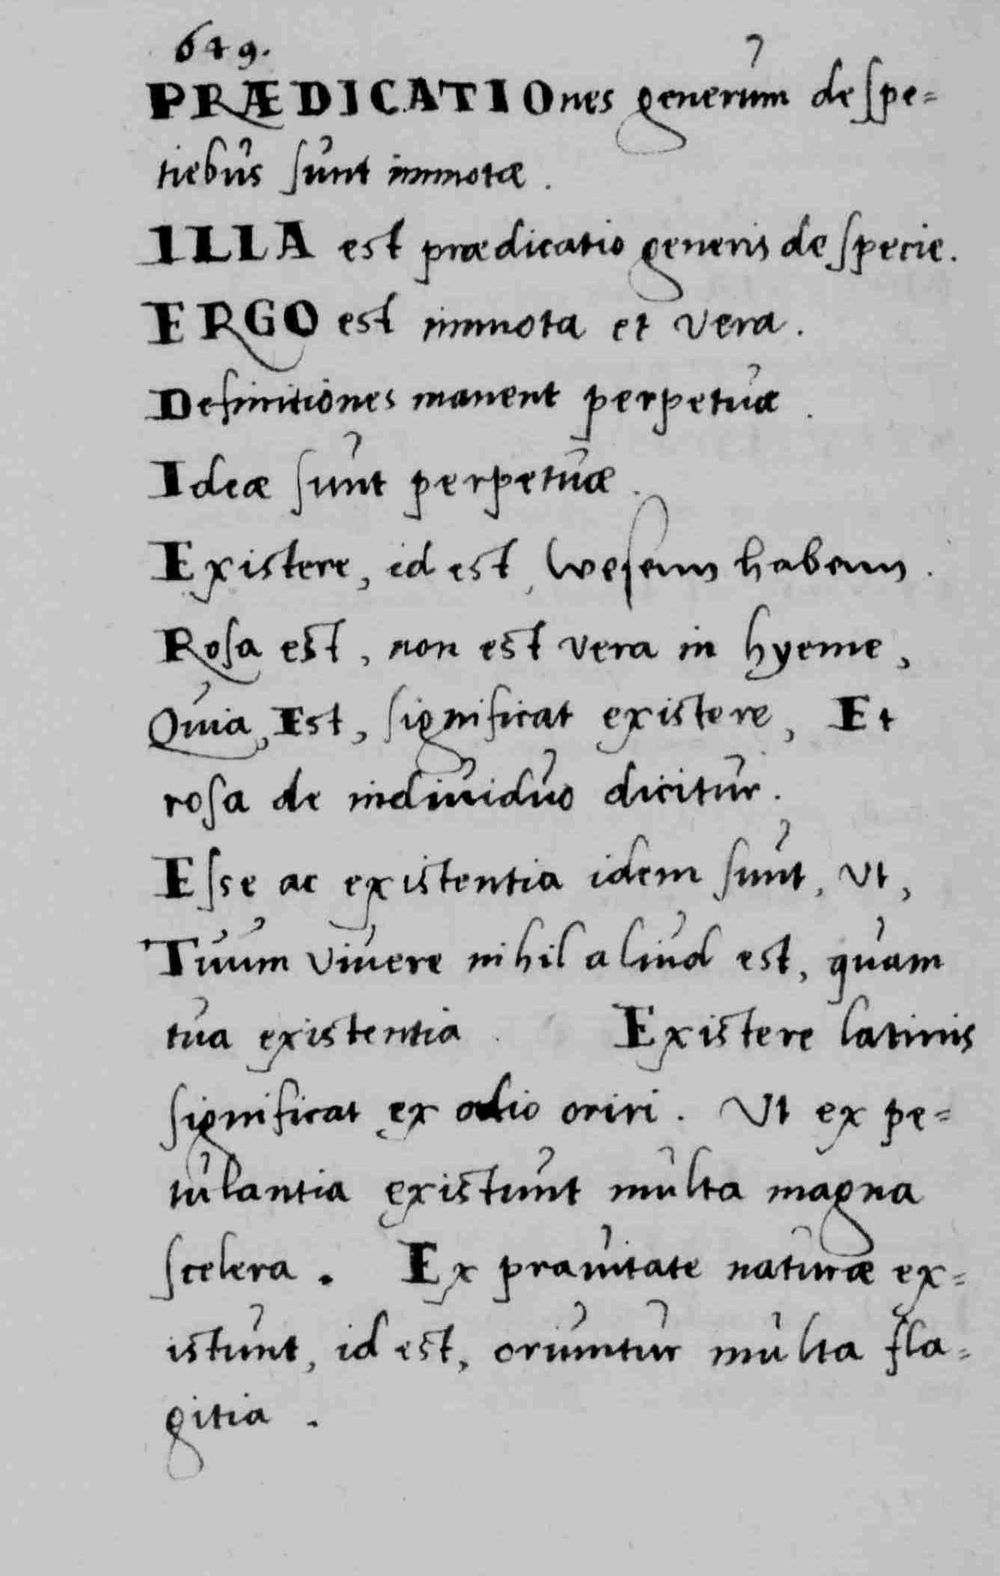 649.
PRÆDICATIOnes generum de spe=
tiebus sunt immotæ.
ILLA est prædicatio generis de specie.
ERGO est immota et vera.
Definitiones manent perpetuæ.
Ideæ sunt perpetuæ.
Existere, id est, wesenn habenn.
Rosa est, non est vera in hyeme,
Quia, Est, significat existere, Et
rosa de indiuiduo dicitur.
Esse ac existentia idem sunt, Ut,
Tuum viuere nihil aliud est, quam
tua existentia. Existere latinis
significat ex odio oriri. Ut ex pe=
tulantia existunt multa magna
scelera. Ex prauitate naturæ ex=
istunt, id est, oriuntur multa fla=
gitia.